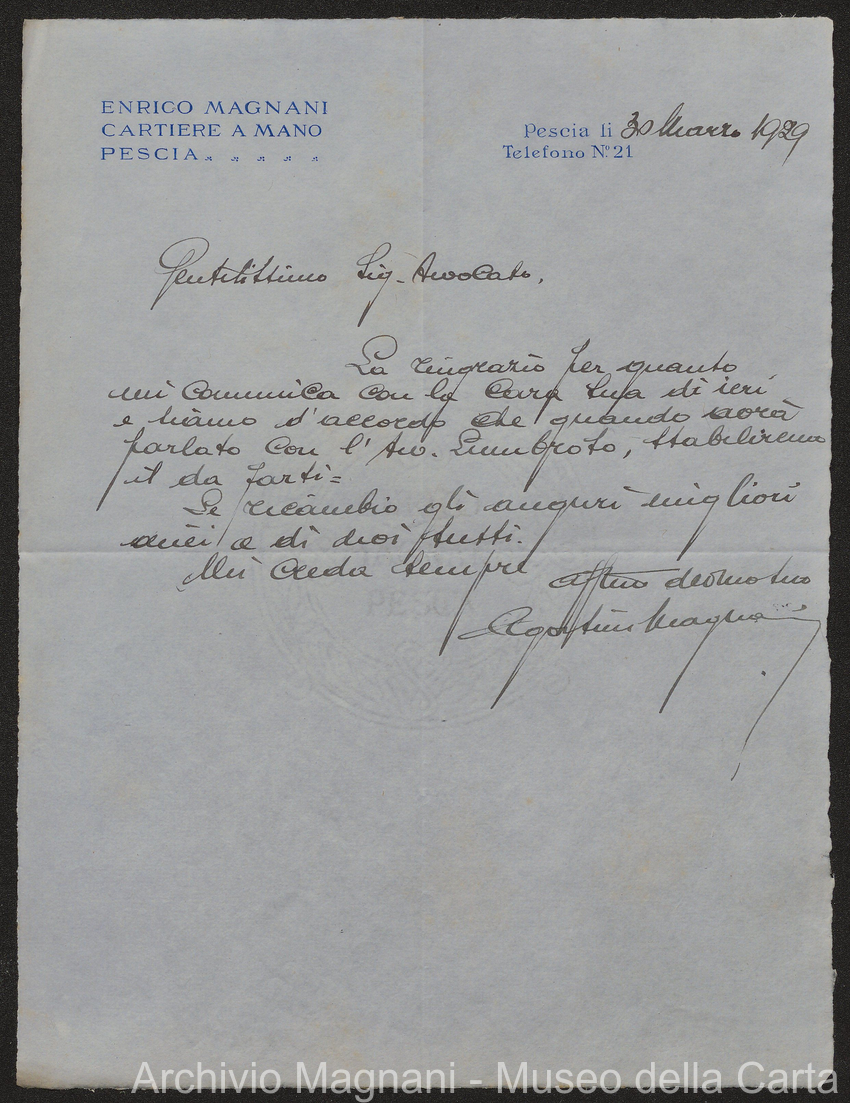 ENRICO MAGNANI
CARTIERE A MANO
PESCIA
Pescia li 30 Marzo 1929
Telefono Nº 21
Gentilissimo Sig. Avvocato,
La ringrazio per quanto
mi comunica con la Cara Sua di ieri
e siamo d'accordo che quando avrà
parlato con l'Avv. Lumbroso, stabiliremo
il da farsi=
Le ricambio gli auguri migliori
miei e di noi tutti.
Mi creda sempre
affmo devmo suo
Agostino Magnani
PESCIA
Archivio Magnani - Museo della Carta